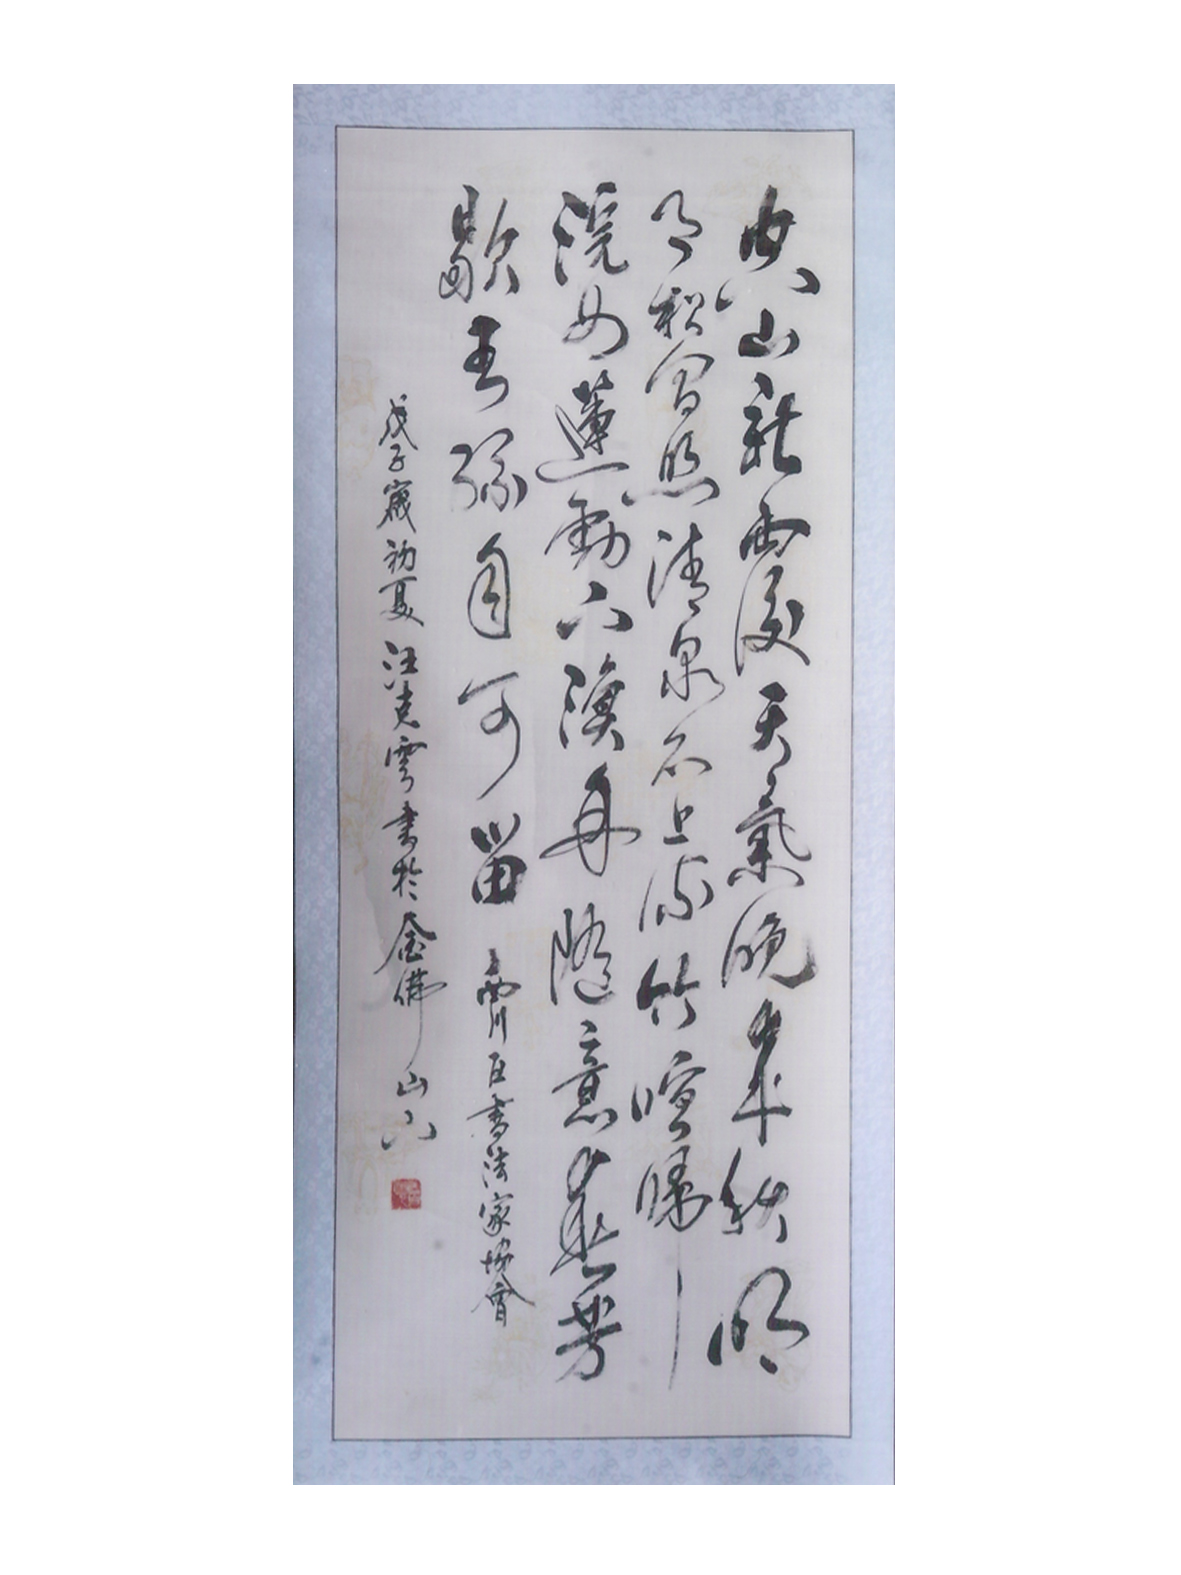 空山新雨後天氣晚來秋明
月松間照清泉石上流竹喧歸
浣女蓮動下漁舟隨意春芳
歇王孫自可留 南川区書法家協會
戊子歲初夏汪克雲書於金佛山下